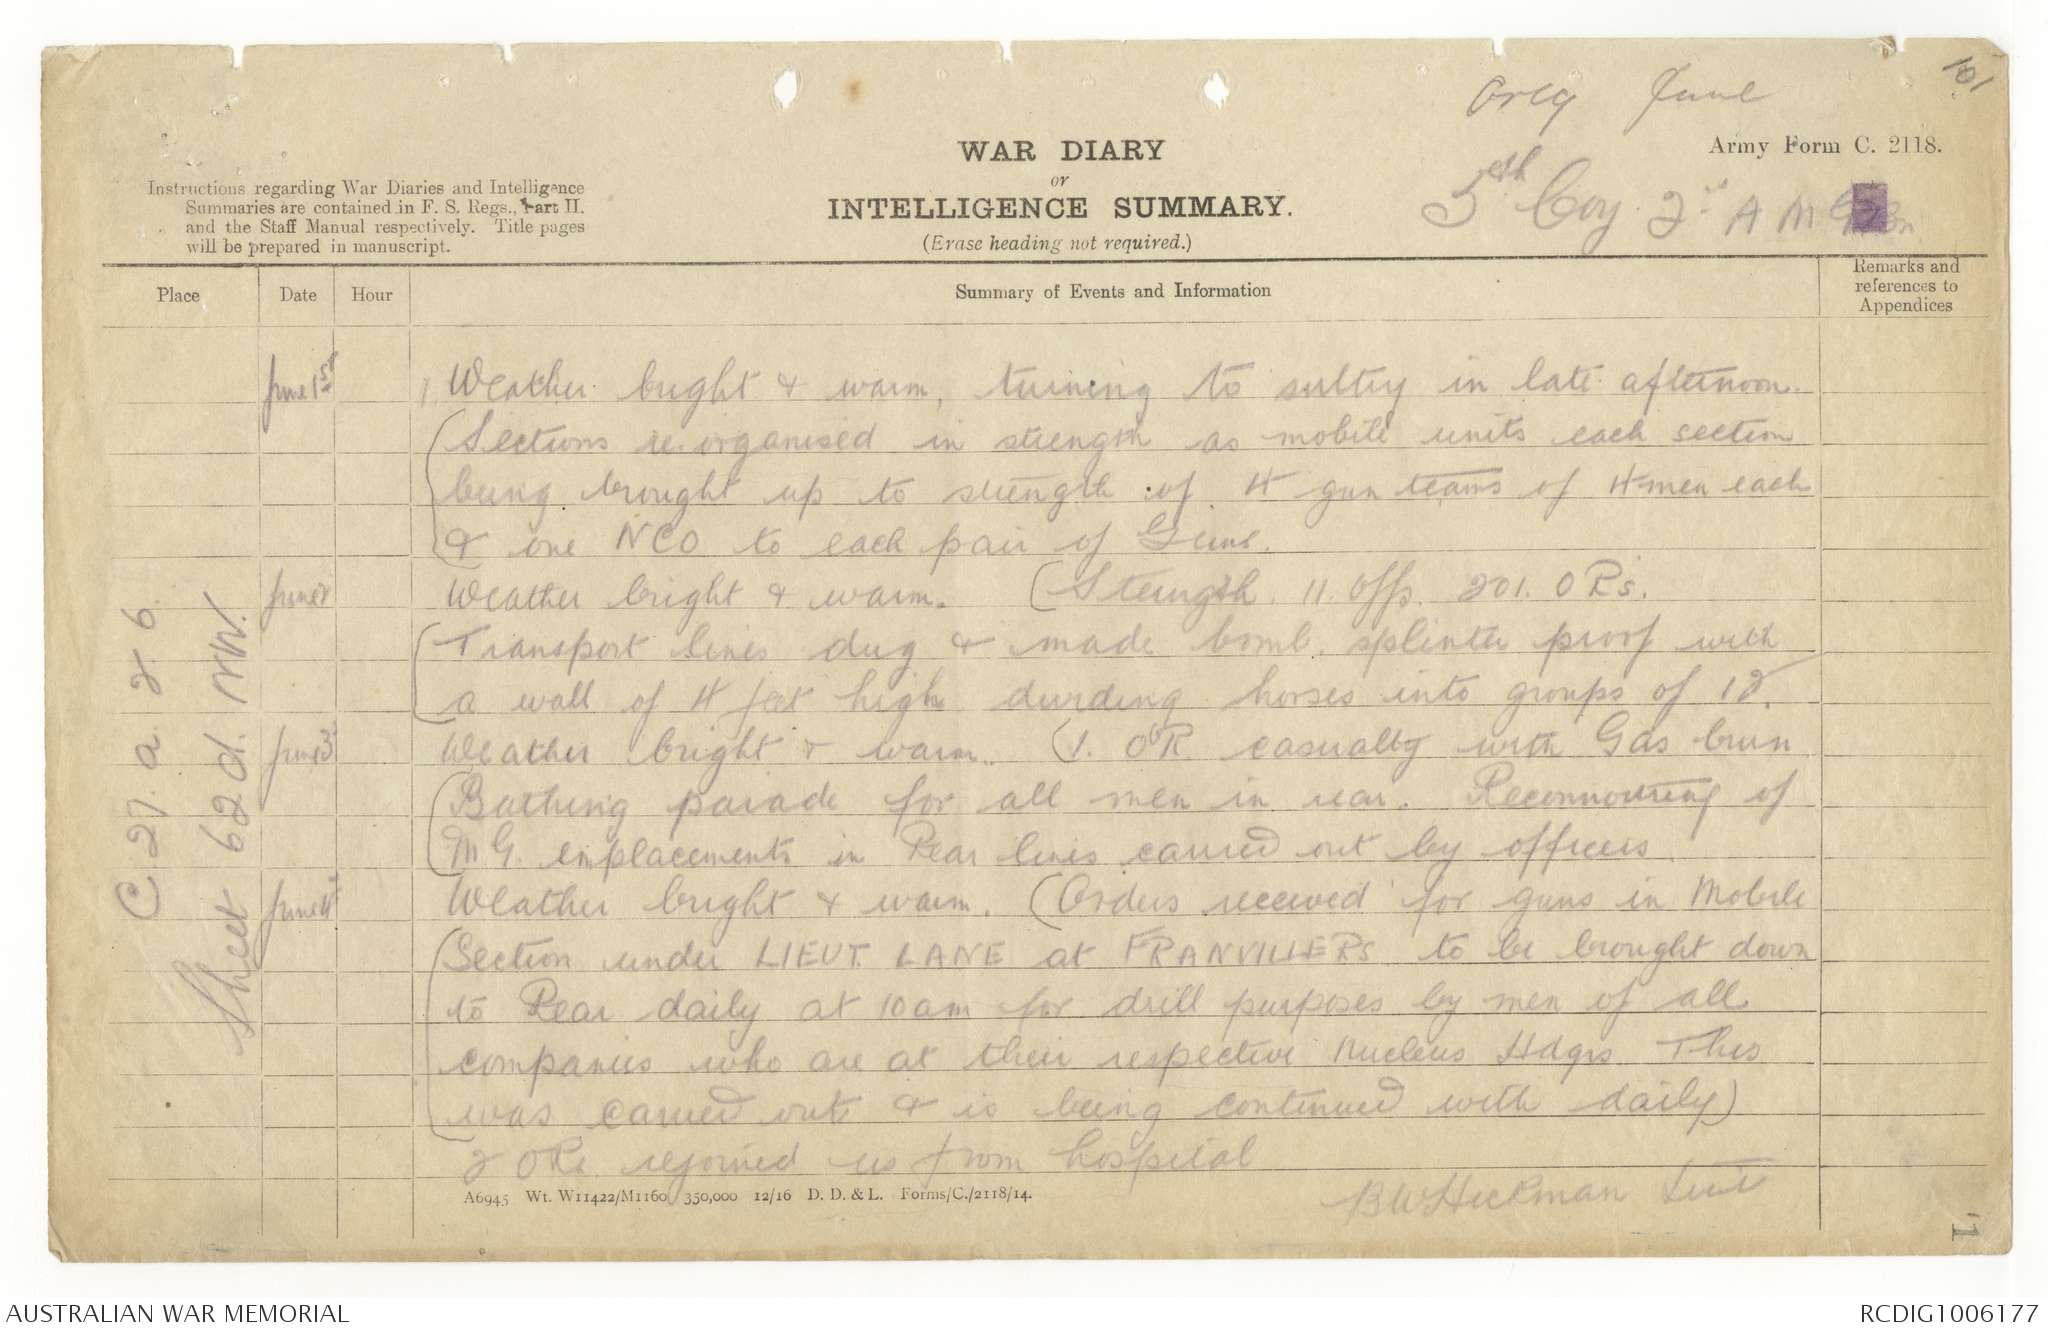 101
Orig June
WAR DIARY
or
INTELLIGENCE SUMMARY.
(Erase heading not required.)
Army Form C. 2118.
5th Coy. 2nd A M G Bn.
Instructions regarding War Diaries and Intelligence
Summaries are contained in F. S. Regs., Part II.
and the Staff Manual respectively. Title pages
will be prepared in manuscript.
Place
Date
Hour
Summary of Events and Information
Remarks and
references to
Appendices
C. 27. a. 2. 6.
Sheet 62 d. NW.
June 1st
Weather bright & warm, turning to sultry in late afternoon.
(Sections re.organised in strength as mobile units each section
being brought up to strength of 4 gun teams of 4 men each
& one NCO to each pair of Guns.
June 2
Weather bright & warm. (Strength. 11. Offs. 201. ORs.
(Transport lines dug & made bomb. splinter proof with
a wall of 4 feet high dividing horses into groups of 12.
June 3
Weather bright & warm. (1. OR. casualty with Gas burn
(Bathing parade for all men in rear. Reconnoitring of
M G. emplacements in Rear lines carried out by officers
June 4
Weather bright & warm. (Orders received for guns in Mobile
(Section under LIEUT. LANE at FRANVILLERS to be brought down
to Rear daily at 10 am for drill purposes by men of all
companies who are at their respective Nucleus Hdqrs. This
was carried out & is being continued with daily)
2 ORs rejoined us from hospital
BW Hickman Lieut
A6945 Wt. W11422/M1160 350,000 12/16 D. D. & L. Forms/C./2118/14.
1
AUSTRALIAN WAR MEMORIAL
RCDIG1006177